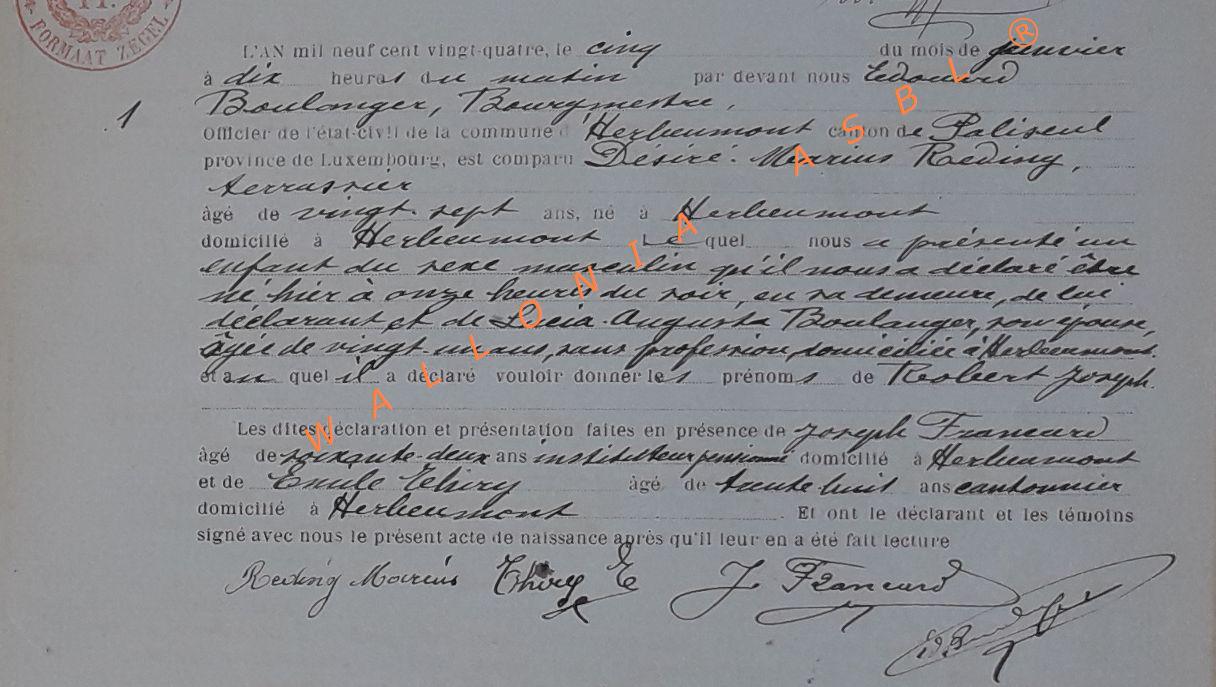 FORMAAT ZEGEL
L'AN mil neuf cent vingt-quatre, le cinq du mois de janvier
à dix heures du matin par devant nous Edouard
Boulanger, Bourgmestre,
1
Officier de l'état-civil de la commune d'Herbeumont canton de Paliseul
province de Luxembourg, est comparu Désiré-Marius Reding,
terrassier
âgé de vingt-sept ans, né à Herbeumont
domicilié à Herbeumont Le quel nous a présenté un
enfant du sexe masculin qu'il nous a déclaré être
né hier à onze heures du soir, en sa demeure, de lui
déclarant et de Lucia-Augusta Boulanger, son épouse,
âgée de vingt-un ans, sans profession, domiciliée à Herbeumont.
et au quel il a déclaré vouloir donner les prénoms de Robert Joseph.
Les dites déclaration et présentation faites en présence de Joseph Francard
âgé de soixante-deux ans instituteur pensionné domicilié à Herbeumont
et de Emile Thiry âgé de trente huit ans cantonnier
domicilié à Herbeumont Et ont le déclarant et les témoins
signé avec nous le présent acte de naissance après qu'il leur en a été fait lecture
Reding Marius Thiry E J Francard
WALLONIA ASBL ®